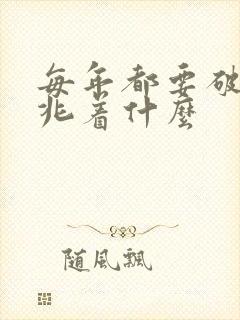 每年都要破
兆着什麼
随風飄